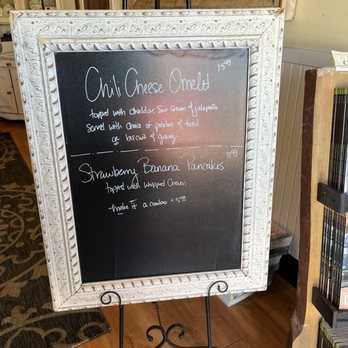 Chili Cheese Omelet 15.99
topped with cheddar, Sour Cream & jalapeños
Served with choice of potatoes & toast
or biscuit & gravy
Strawberry Banana Pancakes 8.99
topped with whipped Cream
-make it a combo + 5.99